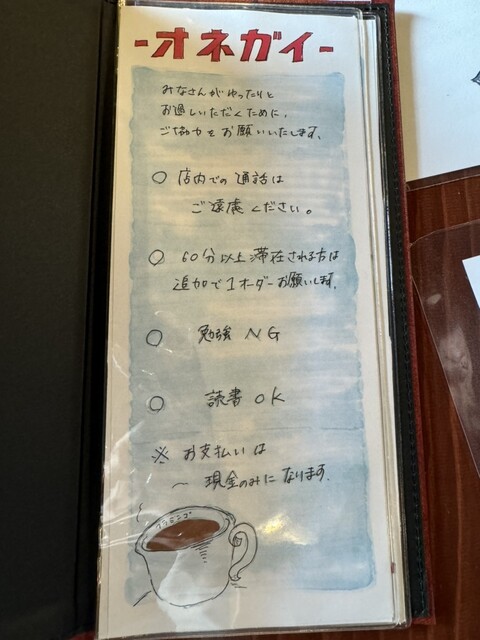 -オネガイ-
みなさんがゆったりと
お過しいただくために、
ご協力をお願いいたします。
○ 店内での通話は
ご遠慮ください。
○ 60分以上滞在される方は
追加で1オーダーお願いします。
○ 勉強 NG
○ 読書 OK
※ お支払いは
〜 現金のみになります。